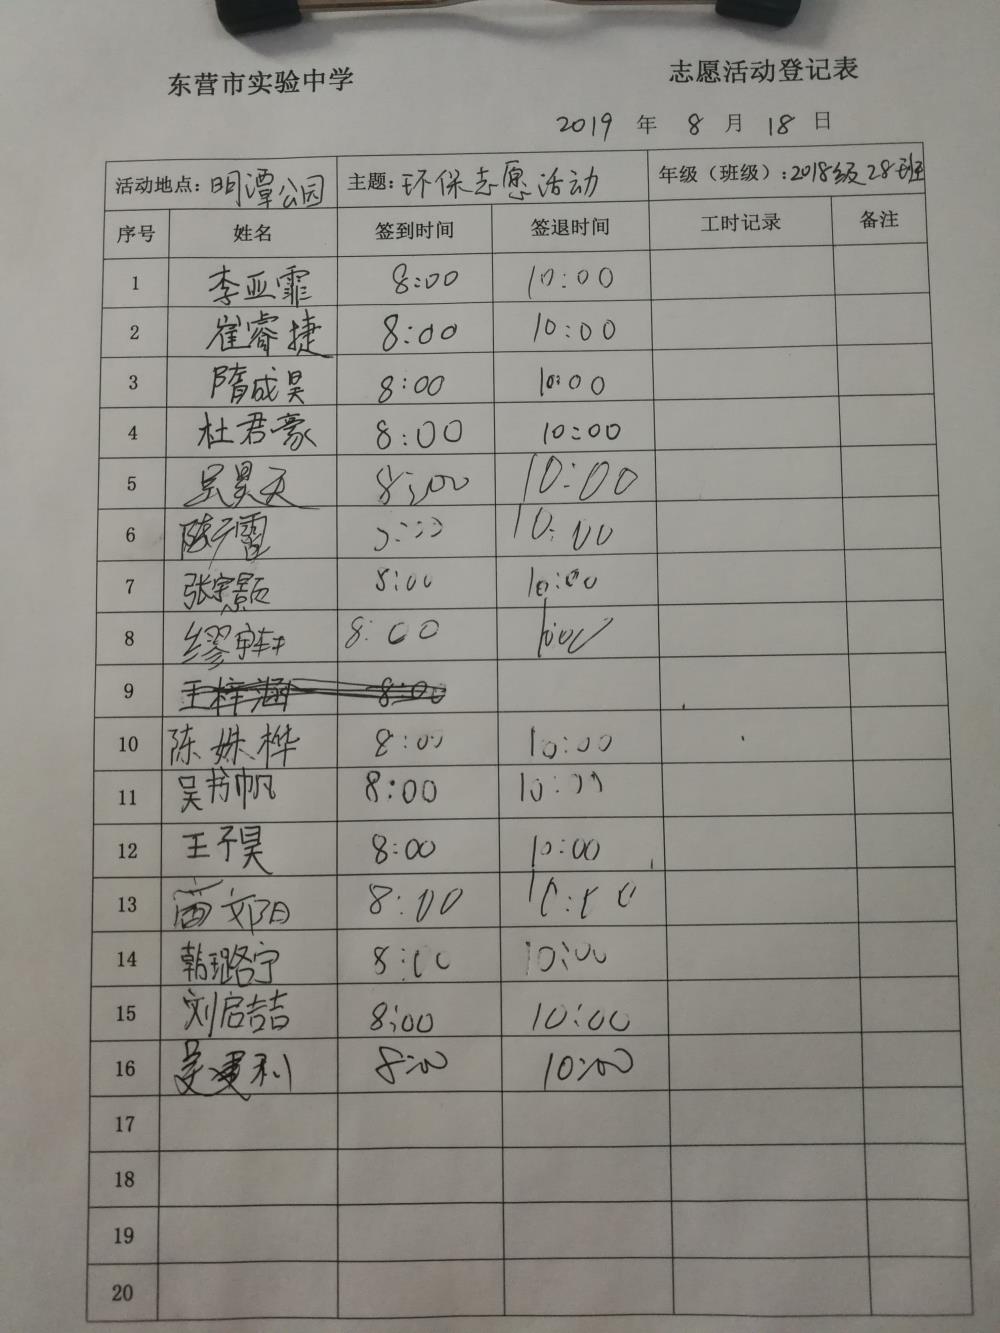 东营市实验中学 志愿活动登记表
2019 年 8 月 18 日
活动地点：明潭公园 主题：环保志愿活动 年级（班级）：2018级28班
序号 姓名 签到时间 签退时间 工时记录 备注
1 李亚霏 8:00 10:00
2 崔睿捷 8:00 10:00
3 隋成昊 8:00 10:00
4 杜君豪 8:00 10:00
5 吴昊天 8:00 10:00
6 10:00
7 张宇颢 8:00 10:00
8 缪宇轩 8:00 10:00
9 王梓涵 8:00
10 陈姝桦 8:00 10:00
11 吴书帆 8:00 10:00
12 王子昊 8:00 10:00
13 8:00 10:00
14 韩璐宁 8:00 10:00
15 刘启喆 8:00 10:00
16 8:00 10:00
17
18
19
20